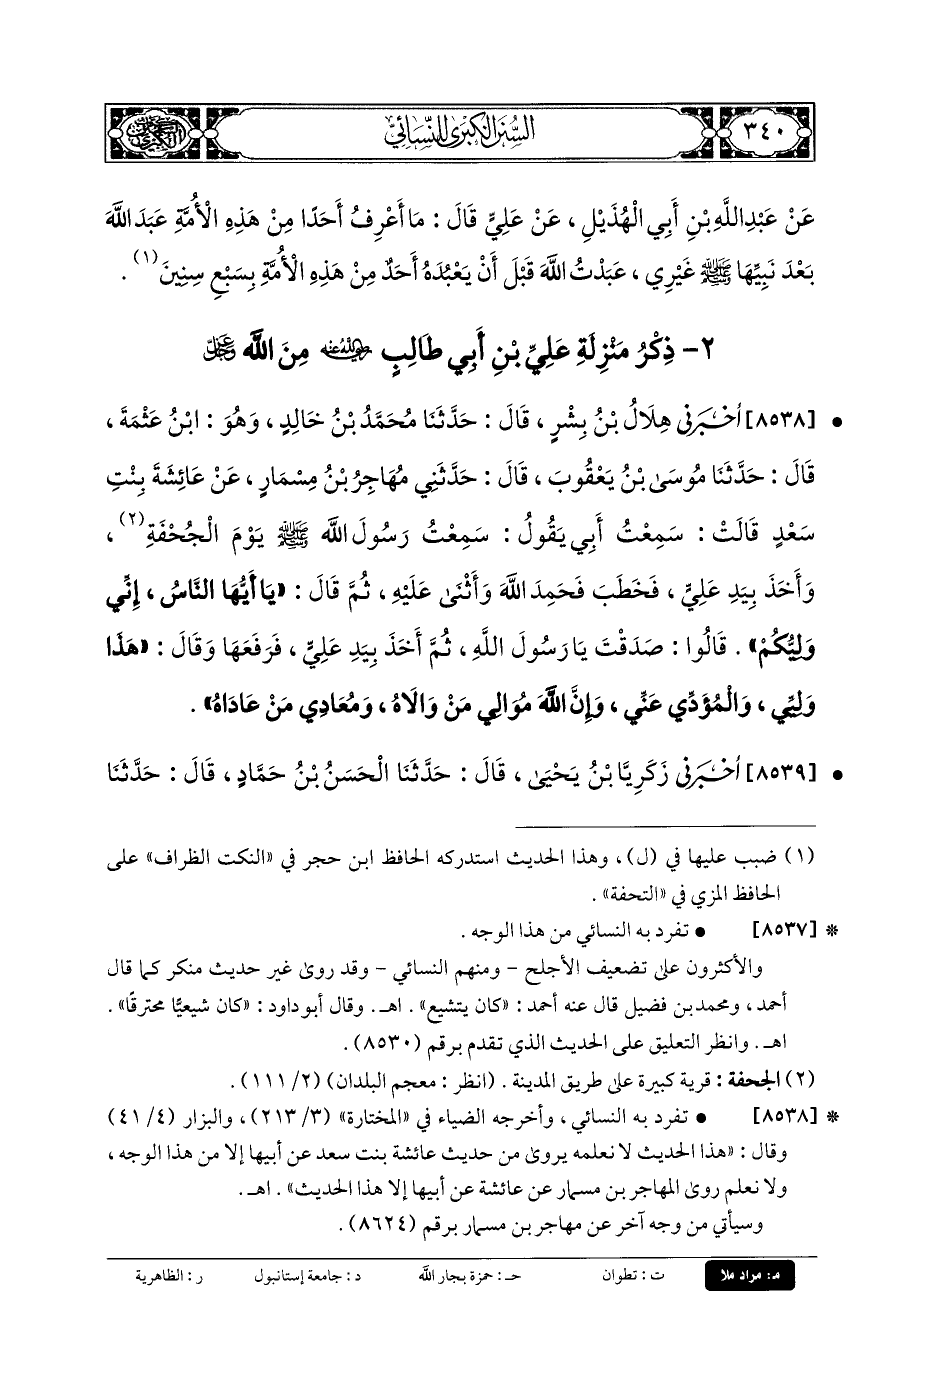 ٣٤٠ السُّنَن الكبرى للنسائي
عَنْ عَبْدِاللَّهِ بْنِ أَبِي الْهُذَيْلِ ، عَنْ عَلِيٍّ قَالَ : مَا أَعْرِفُ أَحَدًا مِنْ هَذِهِ الْأُمَّةِ عَبَدَ اللَّهَ
بَعْدَ نَبِيِّهَا ﷺ غَيْرِي ، عَبَدْتُ اللَّهَ قَبْلَ أَنْ يَعْبُدَهُ أَحَدٌ مِنْ هَذِهِ الْأُمَّةِ بِسَبْعِ سِنِينَ (١) .
٢- ذِكْرُ مَنْزِلَةِ عَلِيِّ بْنِ أَبِي طَالِبٍ رضي الله عنه مِنَ اللَّهِ عز وجل
• [٨٥٣٨] أَخْبَرَنِي هِلَالُ بْنُ بِشْرٍ ، قَالَ : حَدَّثَنَا مُحَمَّدُ بْنُ خَالِدٍ ، وَهُوَ : ابْنُ عَثْمَةَ ،
قَالَ : حَدَّثَنَا مُوسَى بْنُ يَعْقُوبَ ، قَالَ : حَدَّثَنِي مُهَاجِرُ بْنُ مِسْمَارٍ ، عَنْ عَائِشَةَ بِنْتِ
سَعْدٍ قَالَتْ : سَمِعْتُ أَبِي يَقُولُ : سَمِعْتُ رَسُولَ اللَّهِ ﷺ يَوْمَ الْجُحْفَةِ (٢) ،
وَأَخَذَ بِيَدِ عَلِيٍّ ، فَخَطَبَ فَحَمِدَ اللَّهَ وَأَثْنَى عَلَيْهِ ، ثُمَّ قَالَ : «يَا أَيُّهَا النَّاسُ ، إِنِّي
وَلِيُّكُمْ» . قَالُوا : صَدَقْتَ يَا رَسُولَ اللَّهِ ، ثُمَّ أَخَذَ بِيَدِ عَلِيٍّ ، فَرَفَعَهَا وَقَالَ : «هَذَا
وَلِيِّي ، وَالْمُؤَدِّي عَنِّي ، وَإِنَّ اللَّهَ مُوَالِي مَنْ وَالَاهُ ، وَمُعَادِي مَنْ عَادَاهُ» .
• [٨٥٣٩] أَخْبَرَنِي زَكَرِيَّا بْنُ يَحْيَى ، قَالَ : حَدَّثَنَا الْحَسَنُ بْنُ حَمَّادٍ ، قَالَ : حَدَّثَنَا
(١) ضبب عليها في (ل) ، وهذا الحديث استدركه الحافظ ابن حجر في «النكت الظراف» على
الحافظ المزي في «التحفة» .
* [٨٥٣٧] • تفرد به النسائي من هذا الوجه .
والأكثرون على تضعيف الأجلح - ومنهم النسائي - وقد روى غير حديث منكر كما قال
أحمد ، ومحمد بن فضيل قال عنه أحمد : «كان يتشيع» . اهـ . وقال أبو داود : «كان شيعيًّا محترقًا» .
اهـ . وانظر التعليق على الحديث الذي تقدم برقم (٨٥٣٠) .
(٢) الجحفة : قرية كبيرة على طريق المدينة . (انظر : معجم البلدان) (٢/ ١١١) .
* [٨٥٣٨] • تفرد به النسائي ، وأخرجه الضياء في «المختارة» (٣/ ٢١٣) ، والبزار (٤/ ٤١)
وقال : «هذا الحديث لا نعلمه يروى من حديث عائشة بنت سعد عن أبيها إلا من هذا الوجه ،
ولا نعلم روى المهاجر بن مسمار عن عائشة عن أبيها إلا هذا الحديث» . اهـ .
وسيأتي من وجه آخر عن مهاجر بن مسمار برقم (٨٦٢٤) .
م: مراد ملا ت : تطوان حـ : حمزة بجار الله د : جامعة إستانبول ر : الظاهرية